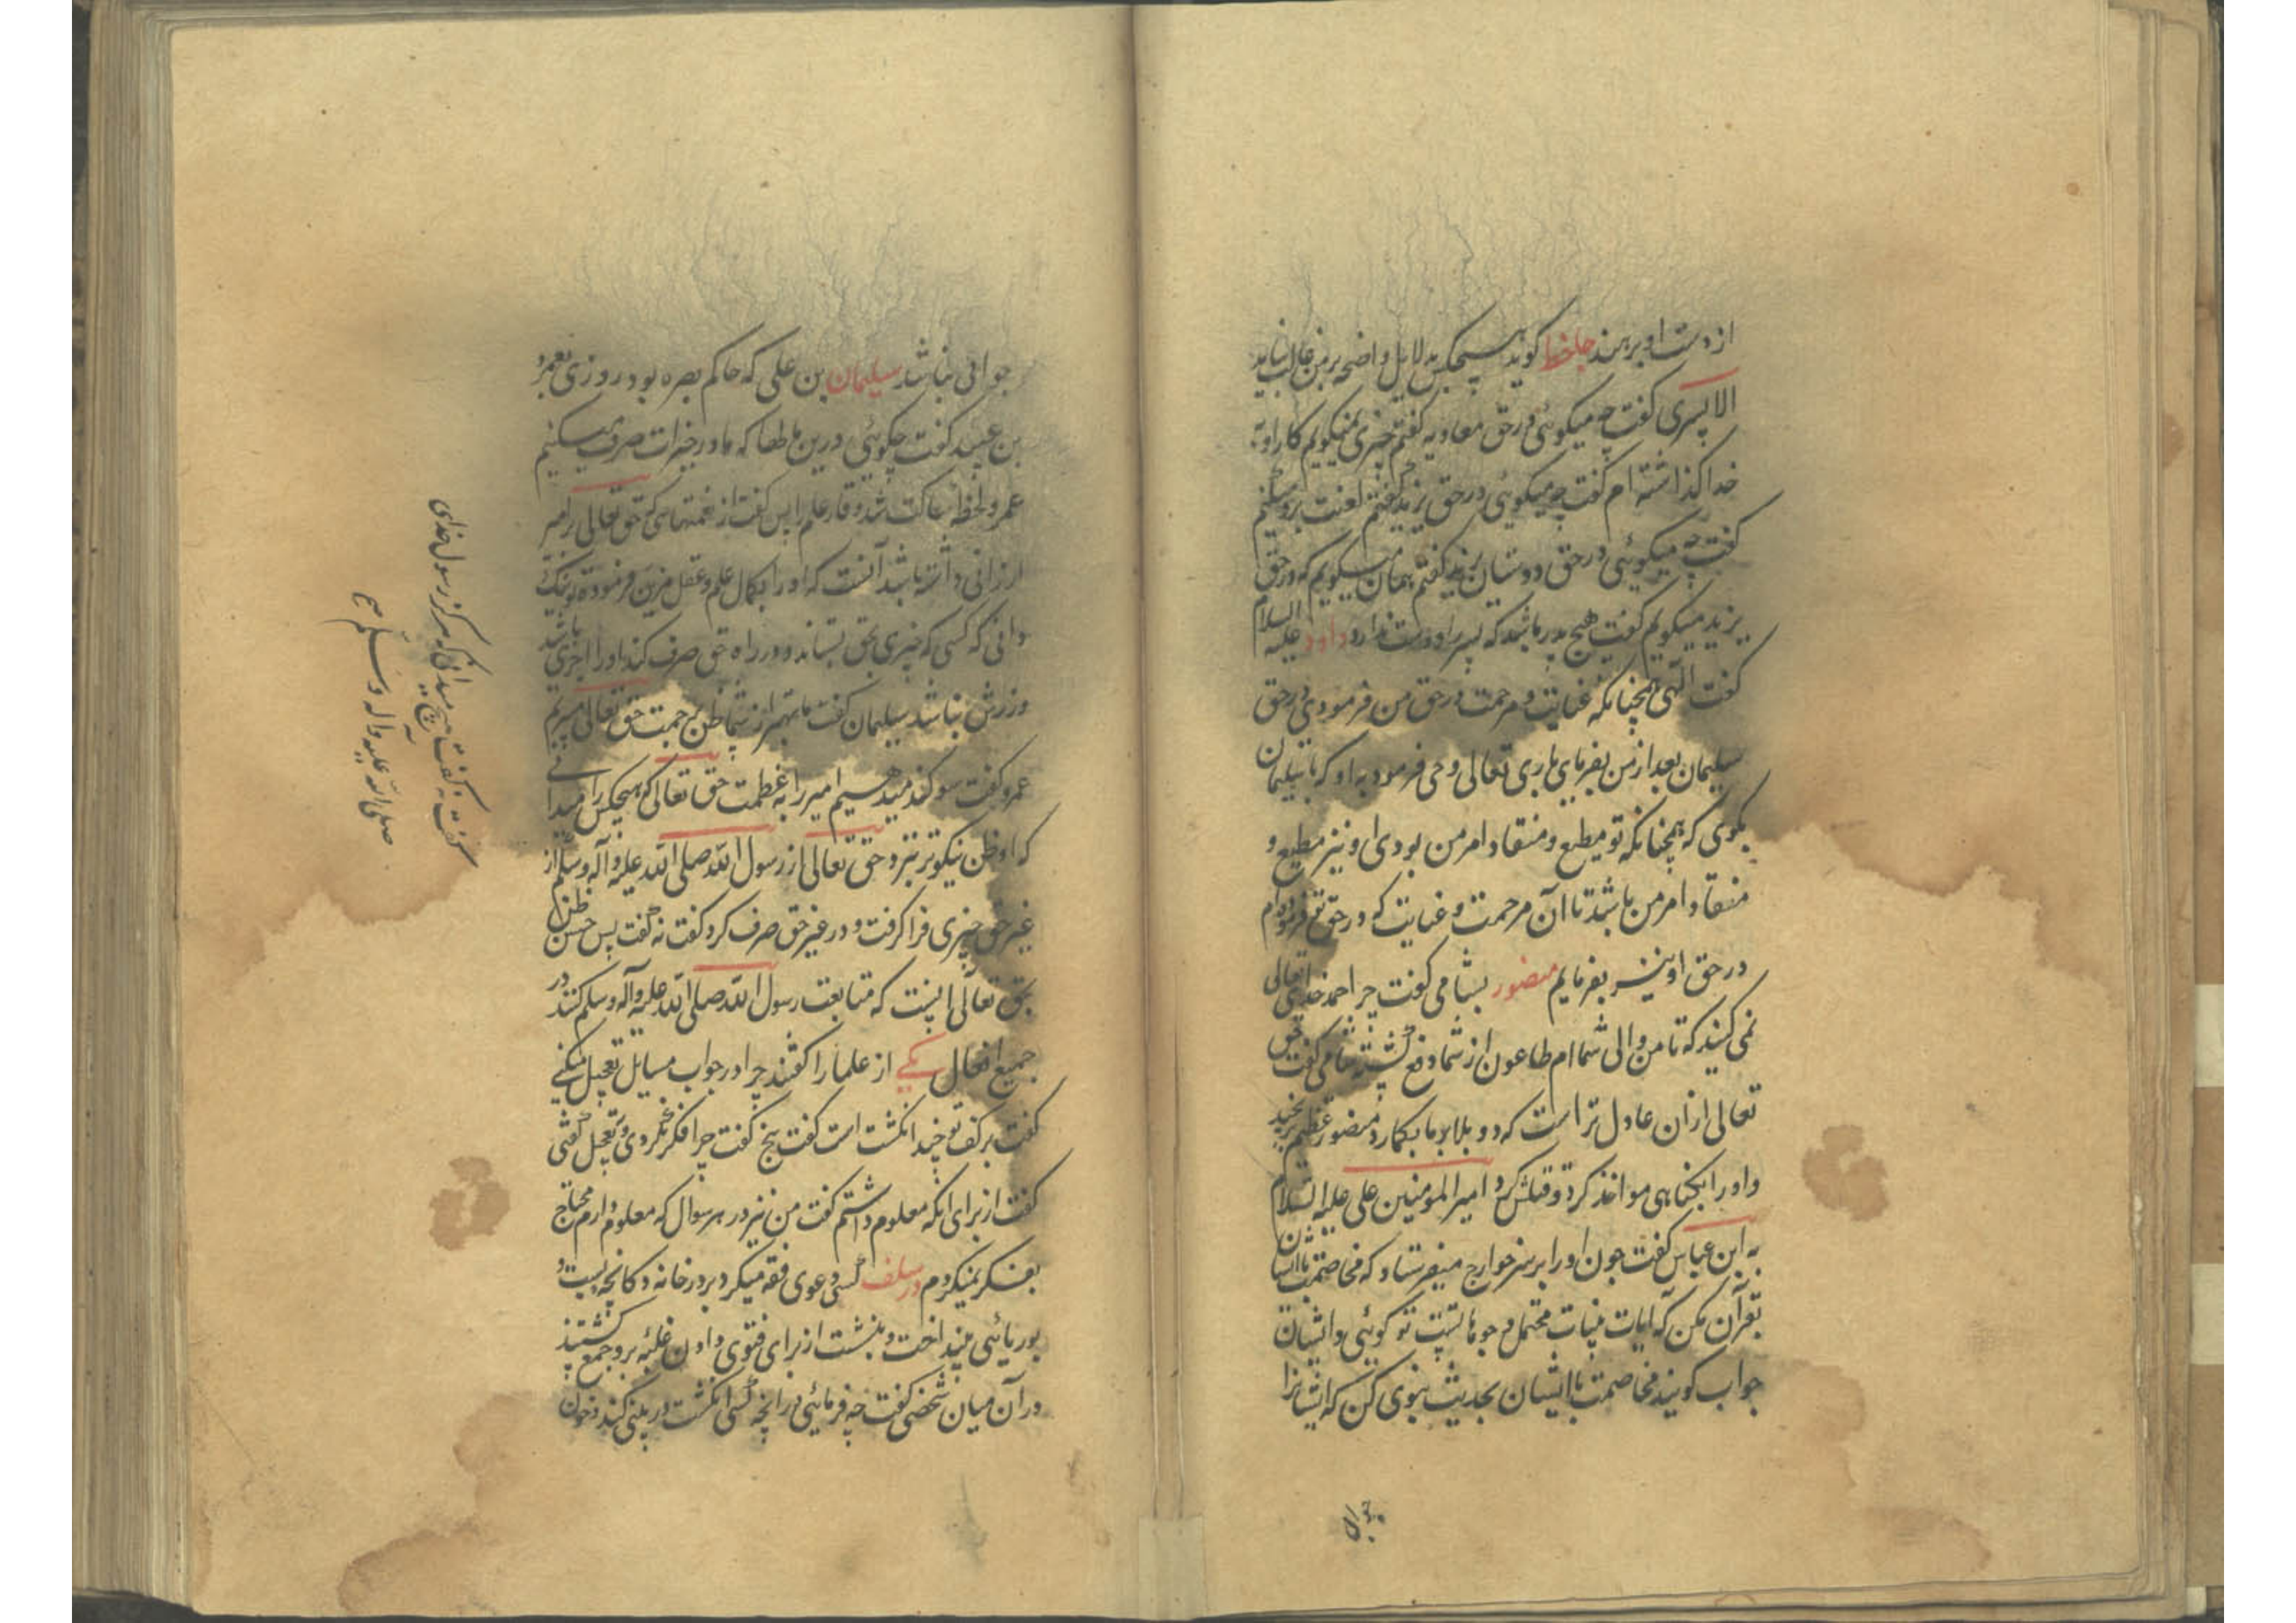 از دست او برهند جاحظ گوید هیچکس بدلایل واضحه بر من غالب نیامد
الا پسری گفت چه میگوئی در حق معاویه گفتم چیزی نمیگویم کار او به
خدا گذاشته ام گفت چه میگوئی در حق یزید گفتم لعنت برو میکنم
گفت چه میگوئی در حق دوستان یزید گفتم همان میگویم که در حق
یزید میگویم گفت هیچ پدر باشد که پسر او دوست ندارد داود علیه السلام
گفت الهی همچنانکه عنایت و مرحمت در حق من فرمودی در حق
سلیمان بعد از من بفرمای باری تعالی وحی فرمود به او که با سلیمان
بگوی که همچنانکه تو مطیع و منقاد امر من بودی او نیز مطیع و
منقاد امر من باشد تا آن مرحمت و عنایت که در حق تو فرموده ام
در حق او نیز بفرمایم منصور بشامی گفت چرا حمد خدای تعالی
نمی کنید که تا من والی شما ام طاعون از شما دفع گشته شامی گفت حق
تعالی از ان عادل تر است که دو بلا بر ما بکمارد منصور عظیم برنجید
و او را بگناهی مواخذ کرد و قتلش کرد امیر المومنین علی علیه السلام
به ابن عباس گفت چون او را بر سر خوارج میفرستاد که مخاصمت با ایشان
بقرآن مکن که آیات بینات محتمل وجوهاتست تو گوئی و ایشان
جواب گویند مخاصمت با ایشان بحدیث نبوی کن که ایشانرا
جوابی
جوابی نباشد سلیمان بن علی که حاکم بصره بود روزی بعمرو
بن عبید گفت چگوئی درین مالها که ما در خیرات صرف میکنیم
عمرو لحظه ساکت شد وقار علم را پس گفت از نعمتهائی که حق تعالی بر امیر
ارزانی داشته باشد آنست که او را بکمال علم و عقل مزین فرموده تو نیک
دانی که کسی که چیزی بحق بستاند و در راه حق صرف کند او را اجری باشد
وزرش نباشد سلیمان گفت ما بهتر از شما ظن برحمت حق تعالی میبریم
عمرو گفت سوگند میدهیم امیر را به عظمت حق تعالی که هیچکس را میدانی
که او ظن نیکوتر برد بحق تعالی از رسول الله صلی الله علیه وآله وسلم از
غیر حق چیزی فرا گرفت و در غیر حق صرف کرد گفت نه گفت پس حسن ظن
بحق تعالی اینست که متابعت رسول الله صلی الله علیه وآله وسلم کنند در
جمیع افعال یکی از علما را گفتند چرا در جواب مسایل تعجیل میکنی
گفت بر کف تو چند انگشت است گفت پنج گفت چرا فکر نکردی و تعجیل گفتی
گفت از برای انکه معلوم داشتم گفت من نیز در هر سوال که معلوم دارم محتاج
بفکر نمیگردم در سلف کسی دعوی فقه میکرد بر در خانه دکانچه بست و
بوریائی بینداخت و بنشست از برای فتوی دادن غلبه برو جمع گشتند
در آن میان شخصی گفت چه فرمائی در انچه کسی انگشت در بینی کند و خون
گفت نه گفت هیچ میدانی که هرگز رسول خدای
صلی الله علیه وآله وسلم